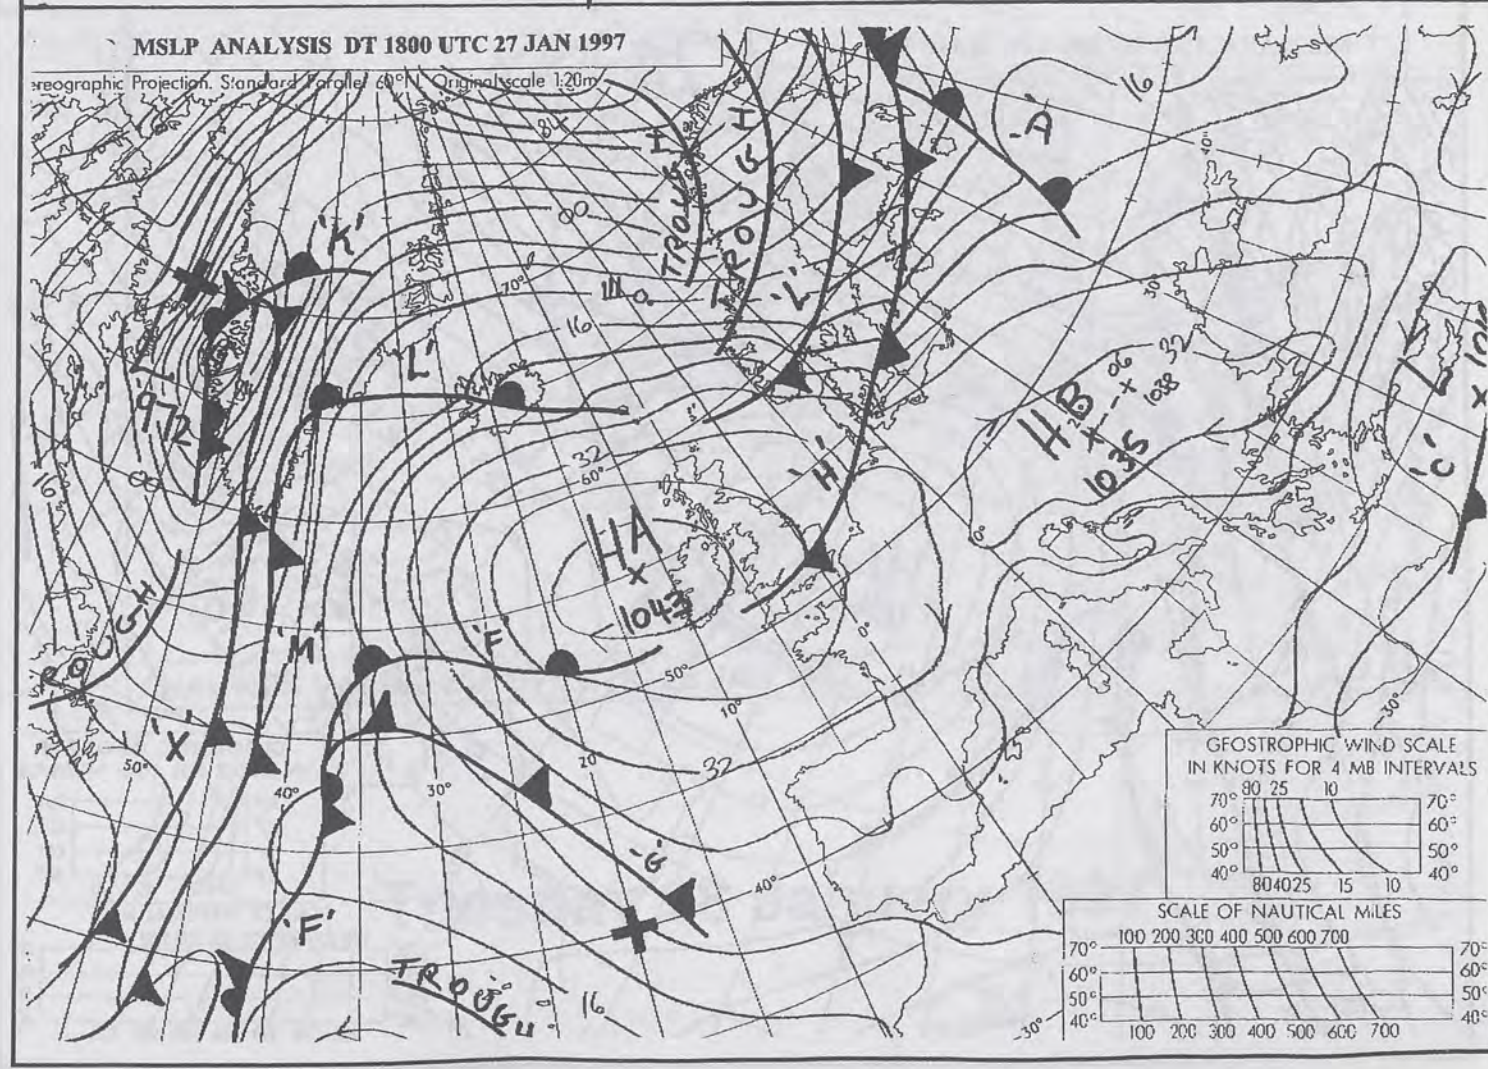 MSLP ANALYSIS DT 1800 UTC 27 JAN 1997
ereographic Projection. Standard Parallel 60°N Original scale 1:20m
84
80°
TROUGH
TROUGH
'A'
16
40°
'K'
00
70°
'L'
16
'L'
30°
HB
06
1038
32
1035
972
'L'
16
32
60°
'H'
'C'
L
HA
1043
0°
0°
TROUGH
'M'
'F'
50°
10°
'X'
50°
40°
30°
20°
32
30°
'G'
40°
'F'
TROUGH
16
30°
GEOSTROPHIC WIND SCALE
IN KNOTS FOR 4 MB INTERVALS
80 25 10
70° 70°
60° 60°
50° 50°
40° 40°
80 40 25 15 10
SCALE OF NAUTICAL MILES
100 200 300 400 500 600 700
70° 70°
60° 60°
50° 50°
40° 40°
100 200 300 400 500 600 700